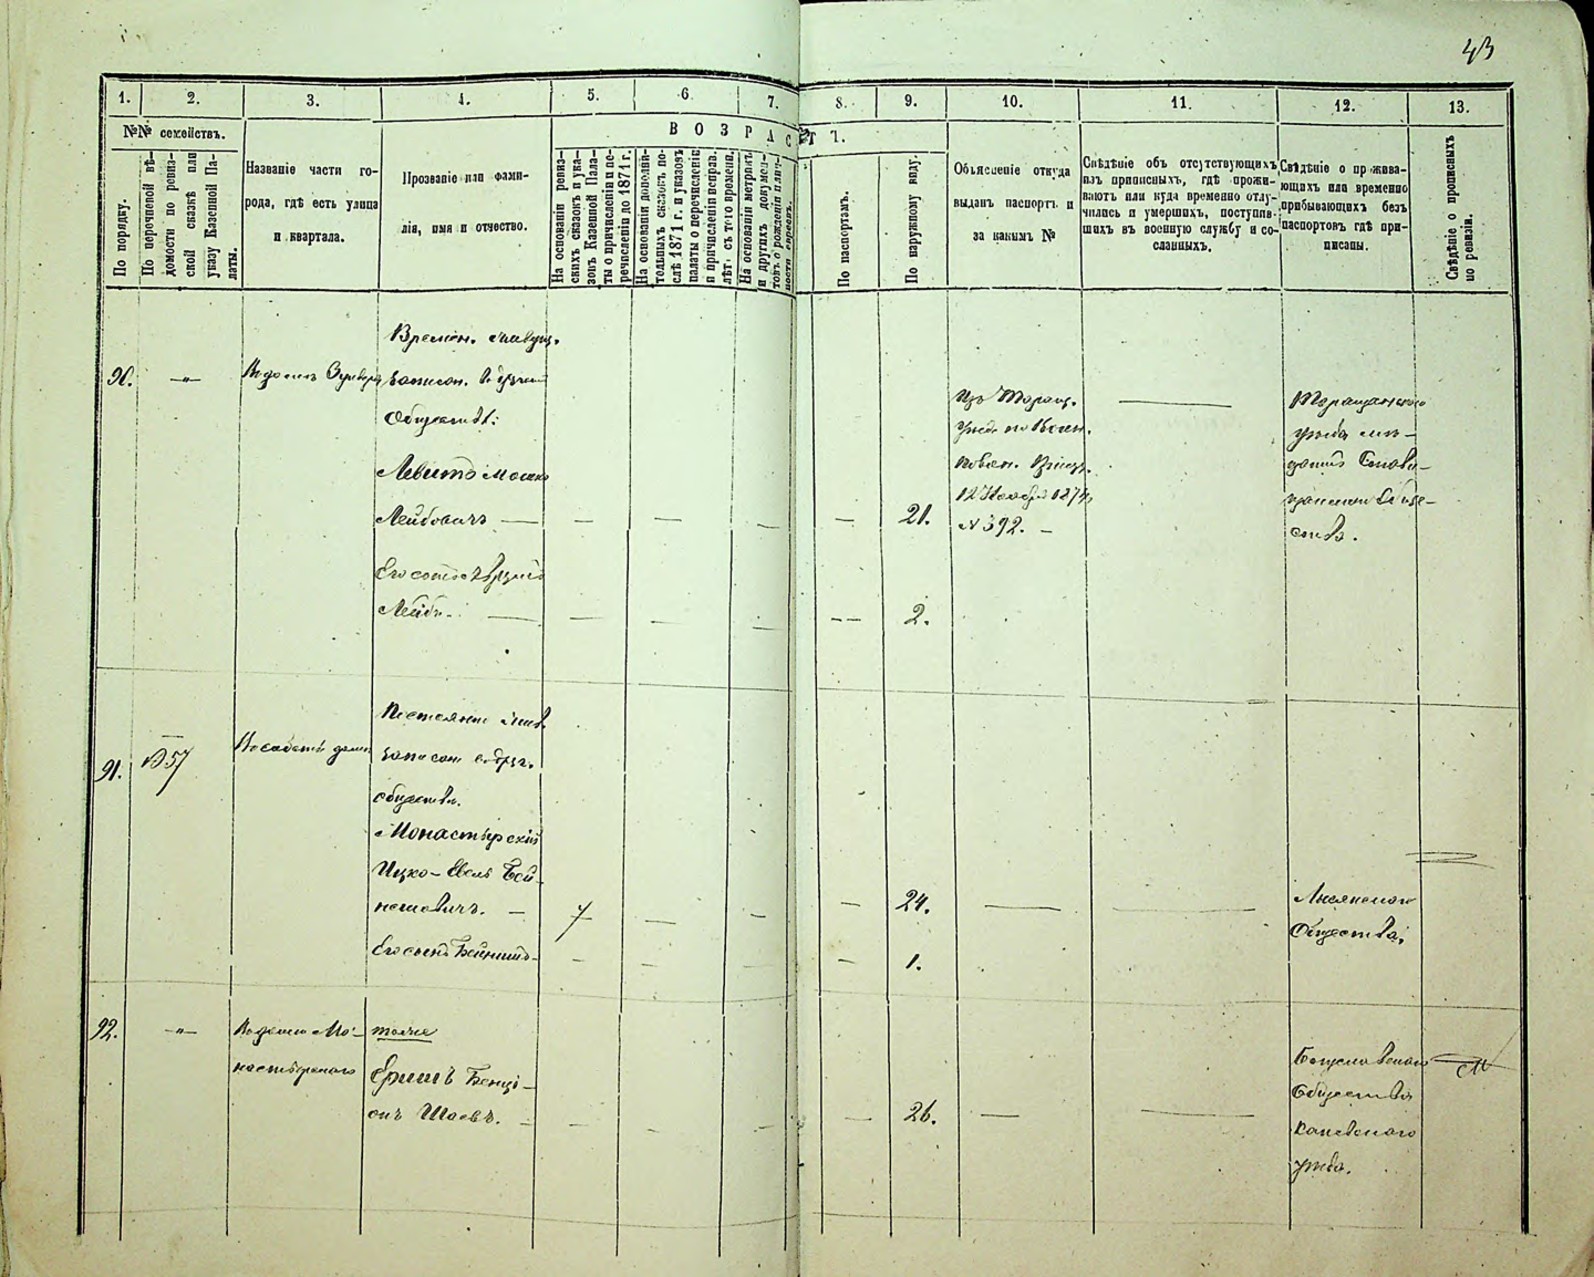 43
1. 2. 3. 4. 5. 6. 7. 8. 9. 10. 11. 12. 13.
№№ семействъ.
По порядку.
По перечневой вѣ-
домости по ревиз-
ской сказкѣ или
указу Казенной Па-
латы.
Названіе части го-
рода, гдѣ есть улица
и квартала.
Прозваніе или фами-
лія, имя и отчество.
ВОЗРАСТЪ.
На основаніи ревиз-
скихъ сказокъ и ука-
зовъ Казенной Пала-
ты о причисленіи и пе-
речисленіи до 1871 г.
На основаніи дополни-
тельныхъ сказокъ по-
слѣ 1871 г. и указовъ
палаты о перечисленіи
и причисленіи исправ.
лѣтъ съ того времени.
На основаніи метрикъ
и другихъ докумен-
товъ о рожденіи
По паспортамъ.
По наружному виду.
Объясненіе откуда
выданъ паспортъ и
за какимъ №
Свѣдѣніе объ отсутствующихъ
изъ приписныхъ, гдѣ прожи-
ваютъ или куда временно отлу-
чились и умершихъ, поступив-
шихъ въ военную службу и со-
сланныхъ.
Свѣдѣніе о прожива-
ющихъ или временно
прибывающихъ безъ
паспортовъ гдѣ при-
писаны.
Свѣдѣніе о прописныхъ
по ревизіи.
90. —„—
Времен. живущ.
записан. въ друг.
Обществѣ:
Левитъ Мошко
Лейбовичъ — — — — — 21.
Его сынъ
Лейба — — — — — 2.
Изъ Таращ.
Уѣзд. по Воен.
Повин. Присут.
12 Ноября 1874
№ 392. —
—
Таращанскаго
уѣзда мѣ-
Стави-
Обще-
ства.
91. 1357
Въ собств. домѣ
Постоянно жив.
записан. въ друг.
обществѣ.
Монастырскій
Ицко-
нешовичъ. — 7 — — — 24. — —
Его сынъ Бейнишъ — — — — — 1.
Лисянскаго
Общества;
92. —„—
Въ домѣ Мо-
настырскаго
тоже
Бенці-
онъ Шаевъ. — — — — — 26. — —
Богуславскаго
Общества
Каневскаго
уѣзда.